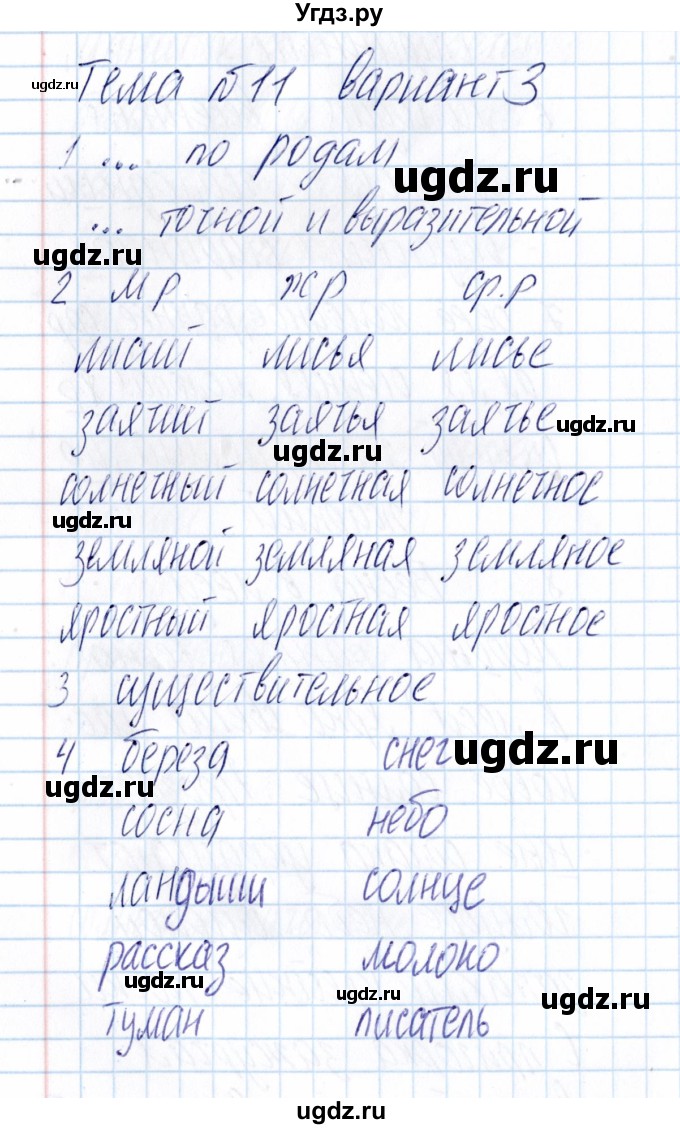 Угдз.ру
ugdz.ru
Тема №11 вариант 3
1 ... по родам
ugdz.ru
... точной и выразительной
ugdz.ru
2 м р ж р ср. р
ugdz.ru
лисий лисья лисье
заячий заячья заячье
ugdz.ru
ugdz.ru
солнечный солнечная солнечное
ugdz.ru
земляной земляная земляное
яростный яростная яростное
3 существительное
4 береза снег
ugdz.ru
ugdz.ru
сосна небо
ландыши солнце
рассказ молоко
ugdz.ru
ugdz.ru
ugdz.ru
туман писатель
ugdz.ru